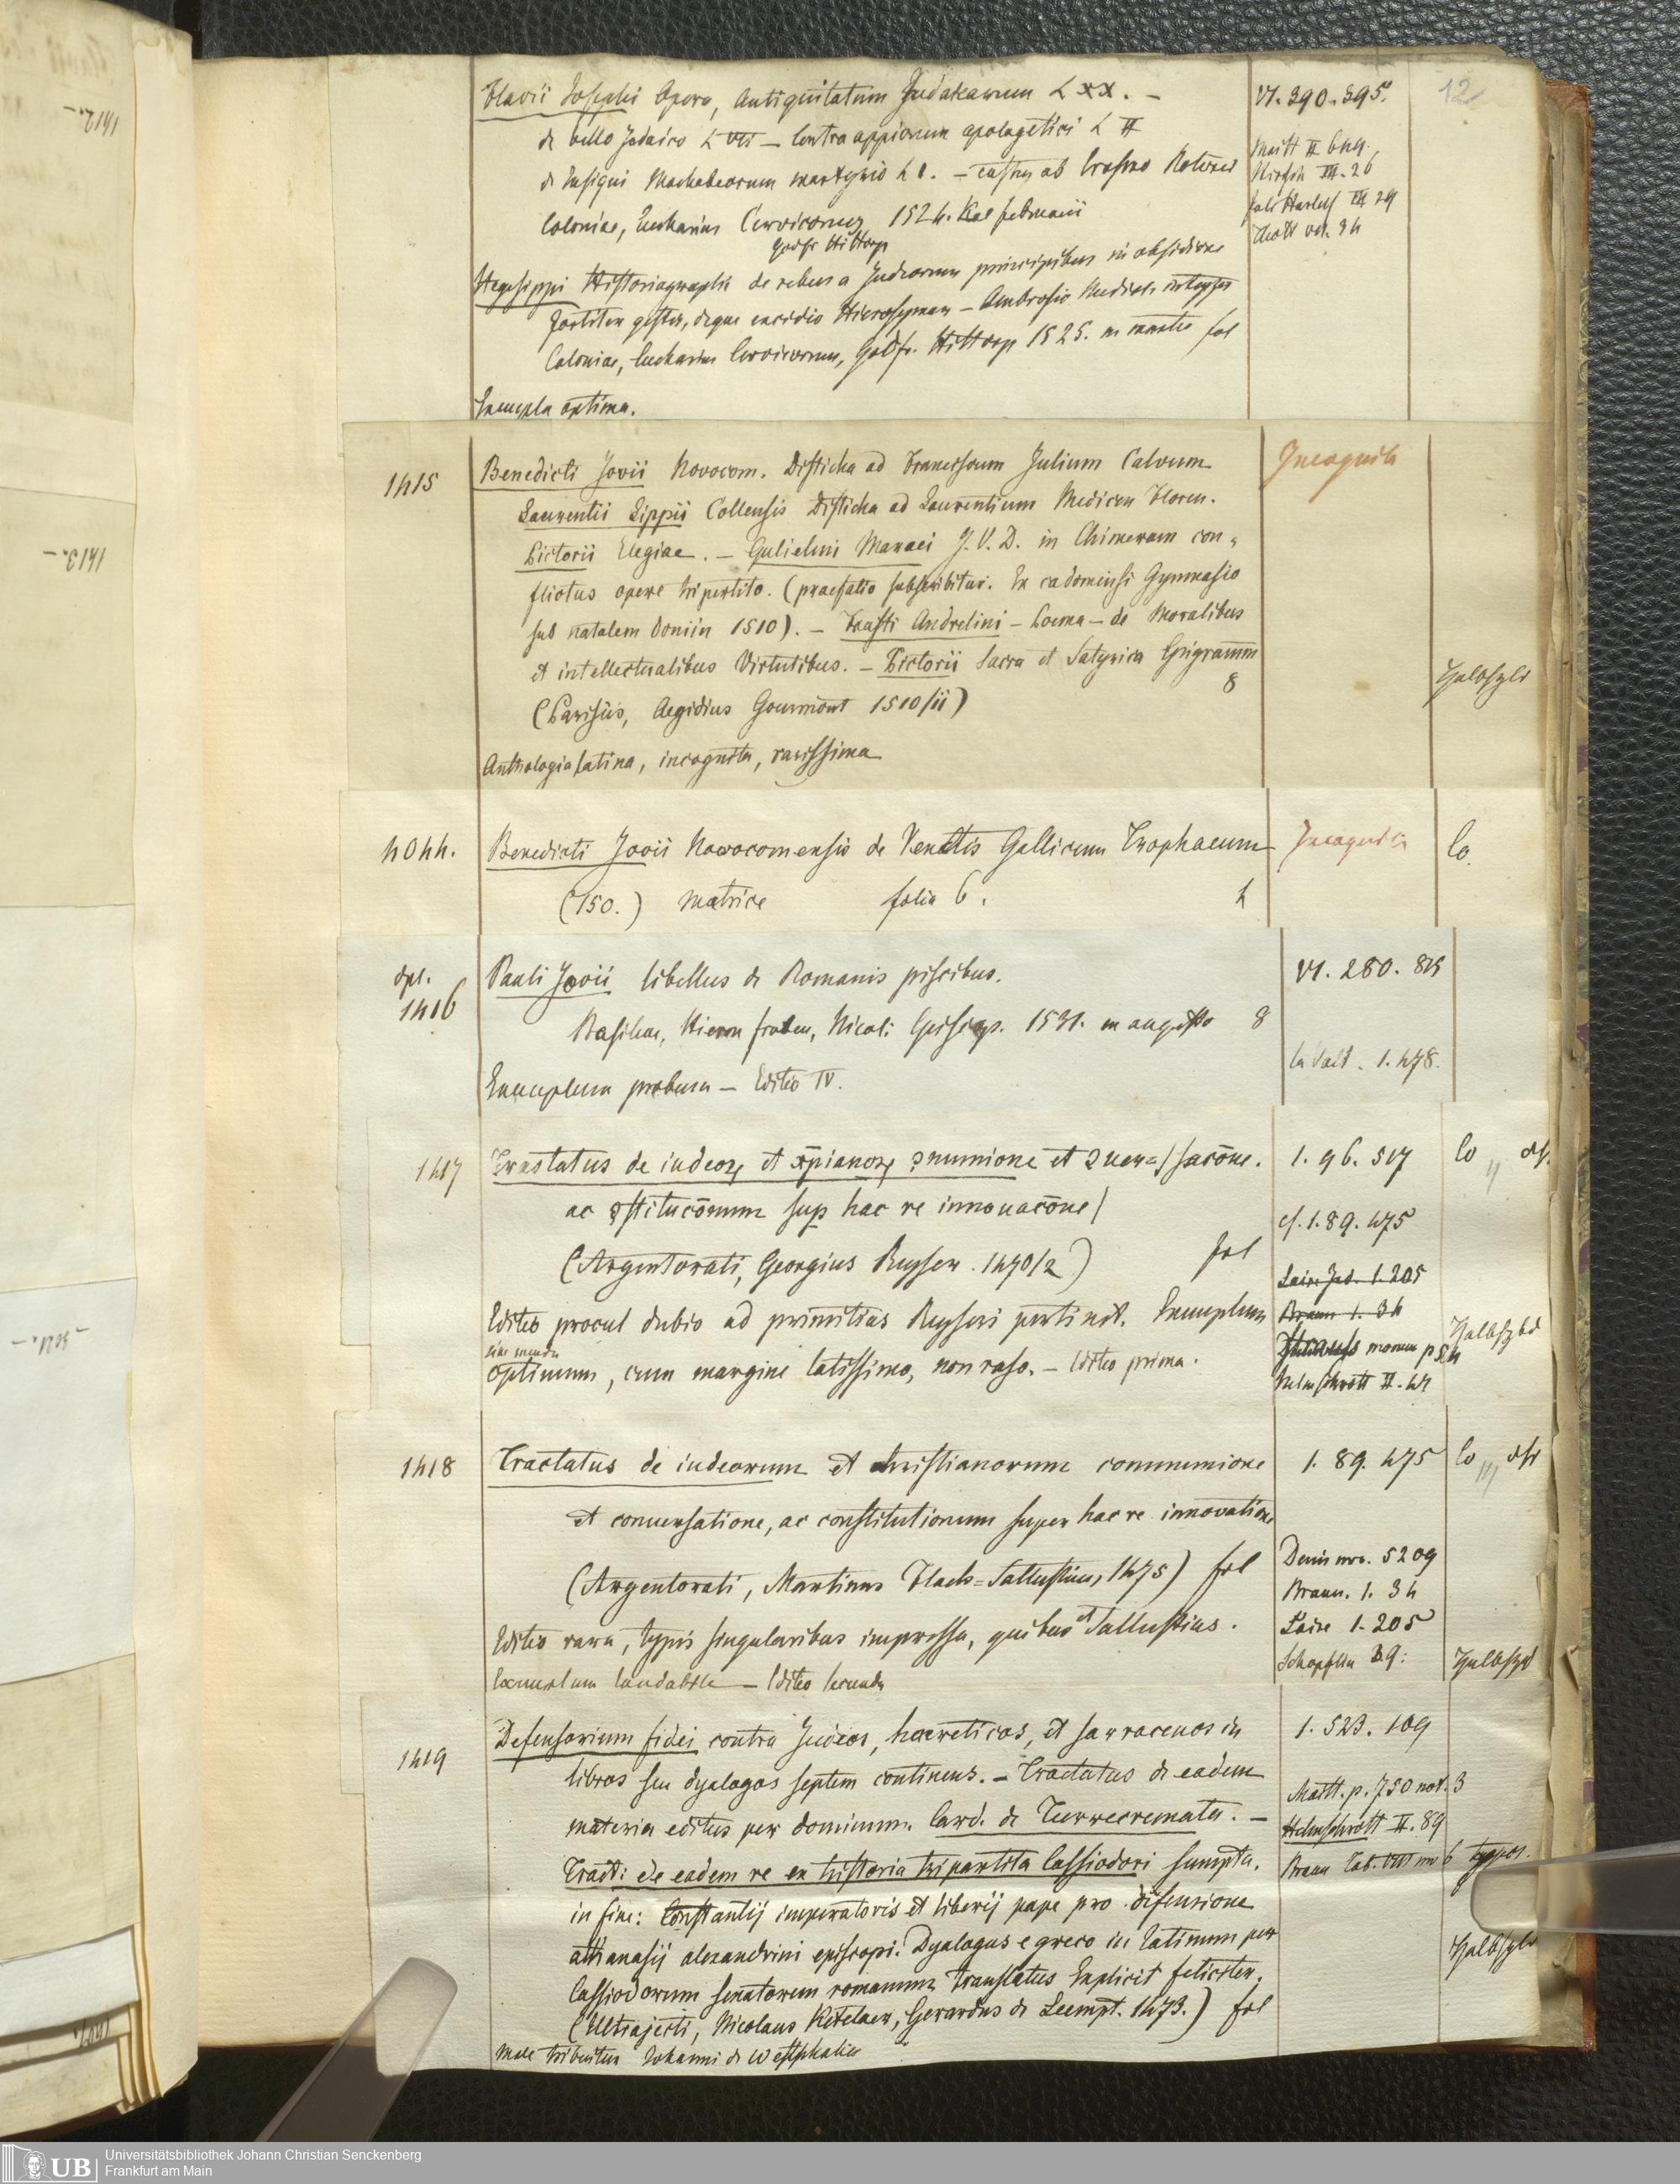 12
Flavii Josephi Opera, Antiquitatum Judaicarum L XX. –
de bello Judaico L VII – Contra appionem apologetici L II
d insigni Machabeorum martyrio L 1. – ab Erasmo Roterod
Coloniae, Eucharius Cervicornus 1524. Kal februarii
Godfr Hittorp
VI. 390. 395.
Maitt II 649.
Hirsch III. 26
Hegesippi Historiographi de rebus a Judaeorum principibus in obsidione
fortiter gestis, deque excidio Hierosolymar – Ambrosio
Coloniae, Eucharius Cervicornus, Godfr. Hittorp 1525. m martio fol
Exempla optima.
1415
Benedicti Jovii Novocom. Disticha ad Franciscum Julium Calvum
Laurentii Lippii Collensis Disticha ad Laurentium Medicen Floren.
Pictorii Elegiae. – Gulielmi Manaei J. V. D. in Chimeram con=
flictus opere tripertito. (praefatio subscribitur. Ex cadomensi Gymnasio
sub natalem Domini 1510). – Fausti Andrelini – Poema – de Moralibus
et intellectualibus Virtutibus. – Pictorii Sacra et Satyrica Epigramm
8
(Parisiis, Aegidius Gourmont 1510/ii)
Anthologia latina, incognita, rarissima
Incognita
Halbfzbd
4044.
Benedicti Jovii Novocomensis de Venetis Gallicum Trophaeum
(150.) Matrice folia 6. 4
Incognita
Co.
dpl.
1416
Pauli Jovii libellus de Romanis piscibus.
Basileae, Hieron froben, Nicol: Episcop. 1531. m augusto 8
Exemplum probum – Editio IV.
VI. 280. 825
La Vall. 1. 478.
1417
Tractatus de iudeoꝝ et xp̄ianoꝝ ꝯmunione et ꝯuer=/sacōne.
ac ꝯstitucōnum sup hac re innouacōne/
(Argentorati, Georgius Reyser. 1470/2) fol
Editio procul dubio ad primitias Reyseri pertinet. Exemplum
sine mendo
optimum, cum margine latissimo, non raso. – Editio prima.
1. 96. 517
cf. 1. 89. 475
Laire Ind. 1. 205
Braun 1. 34
Strauss monum p 54
Helmschrott II. 41
Co
Halbfzbd
1418
Tractatus de iudeorum et christianorum communione
et conuersatione, ac constitutionum super hac re innovatione
(Argentorati, Martinus Flach=Sallustius, 1475) fol
Editio rara, typis singularibus impressa, quibus et Sallustius.
Exemplum laudabile – Editio secunda
1. 89. 475
Denis nro. 5209
Braun. 1. 34
Laire 1. 205
Schöpflin 39:
Co
Halbfzbd
1419
Defensorium fidei contra Judeos, haereticos, et sarracenos in
libros seu dyalogos septem continens. – Tractatus de eadem
materia editus per dominum. Card. de Turrecremata. –
Tract: de eadem re ex historia tripartita Cassiodori sumpta.
in fine: Constantij imperatoris et liberij pape pro defensione
athanasij alexandrini episcopi. Dyalogus e greco in latinum per
Cassiodorum senatorem romanum translatus Explicit feliciter.
(Ultrajecti, Nicolaus Ketelaer, Gerardus de Leempt. 1473.) fol
Male tribuitur Johanni de Westphalia
1. 523. 109
Maitt. p. 750 not. 3
Helmschrott II. 89
Braun Tab. VIII nro 6 typor.
Halbfzbd
1412.–
1413.–
UB
Universitätsbibliothek Johann Christian Senckenberg
Frankfurt am Main